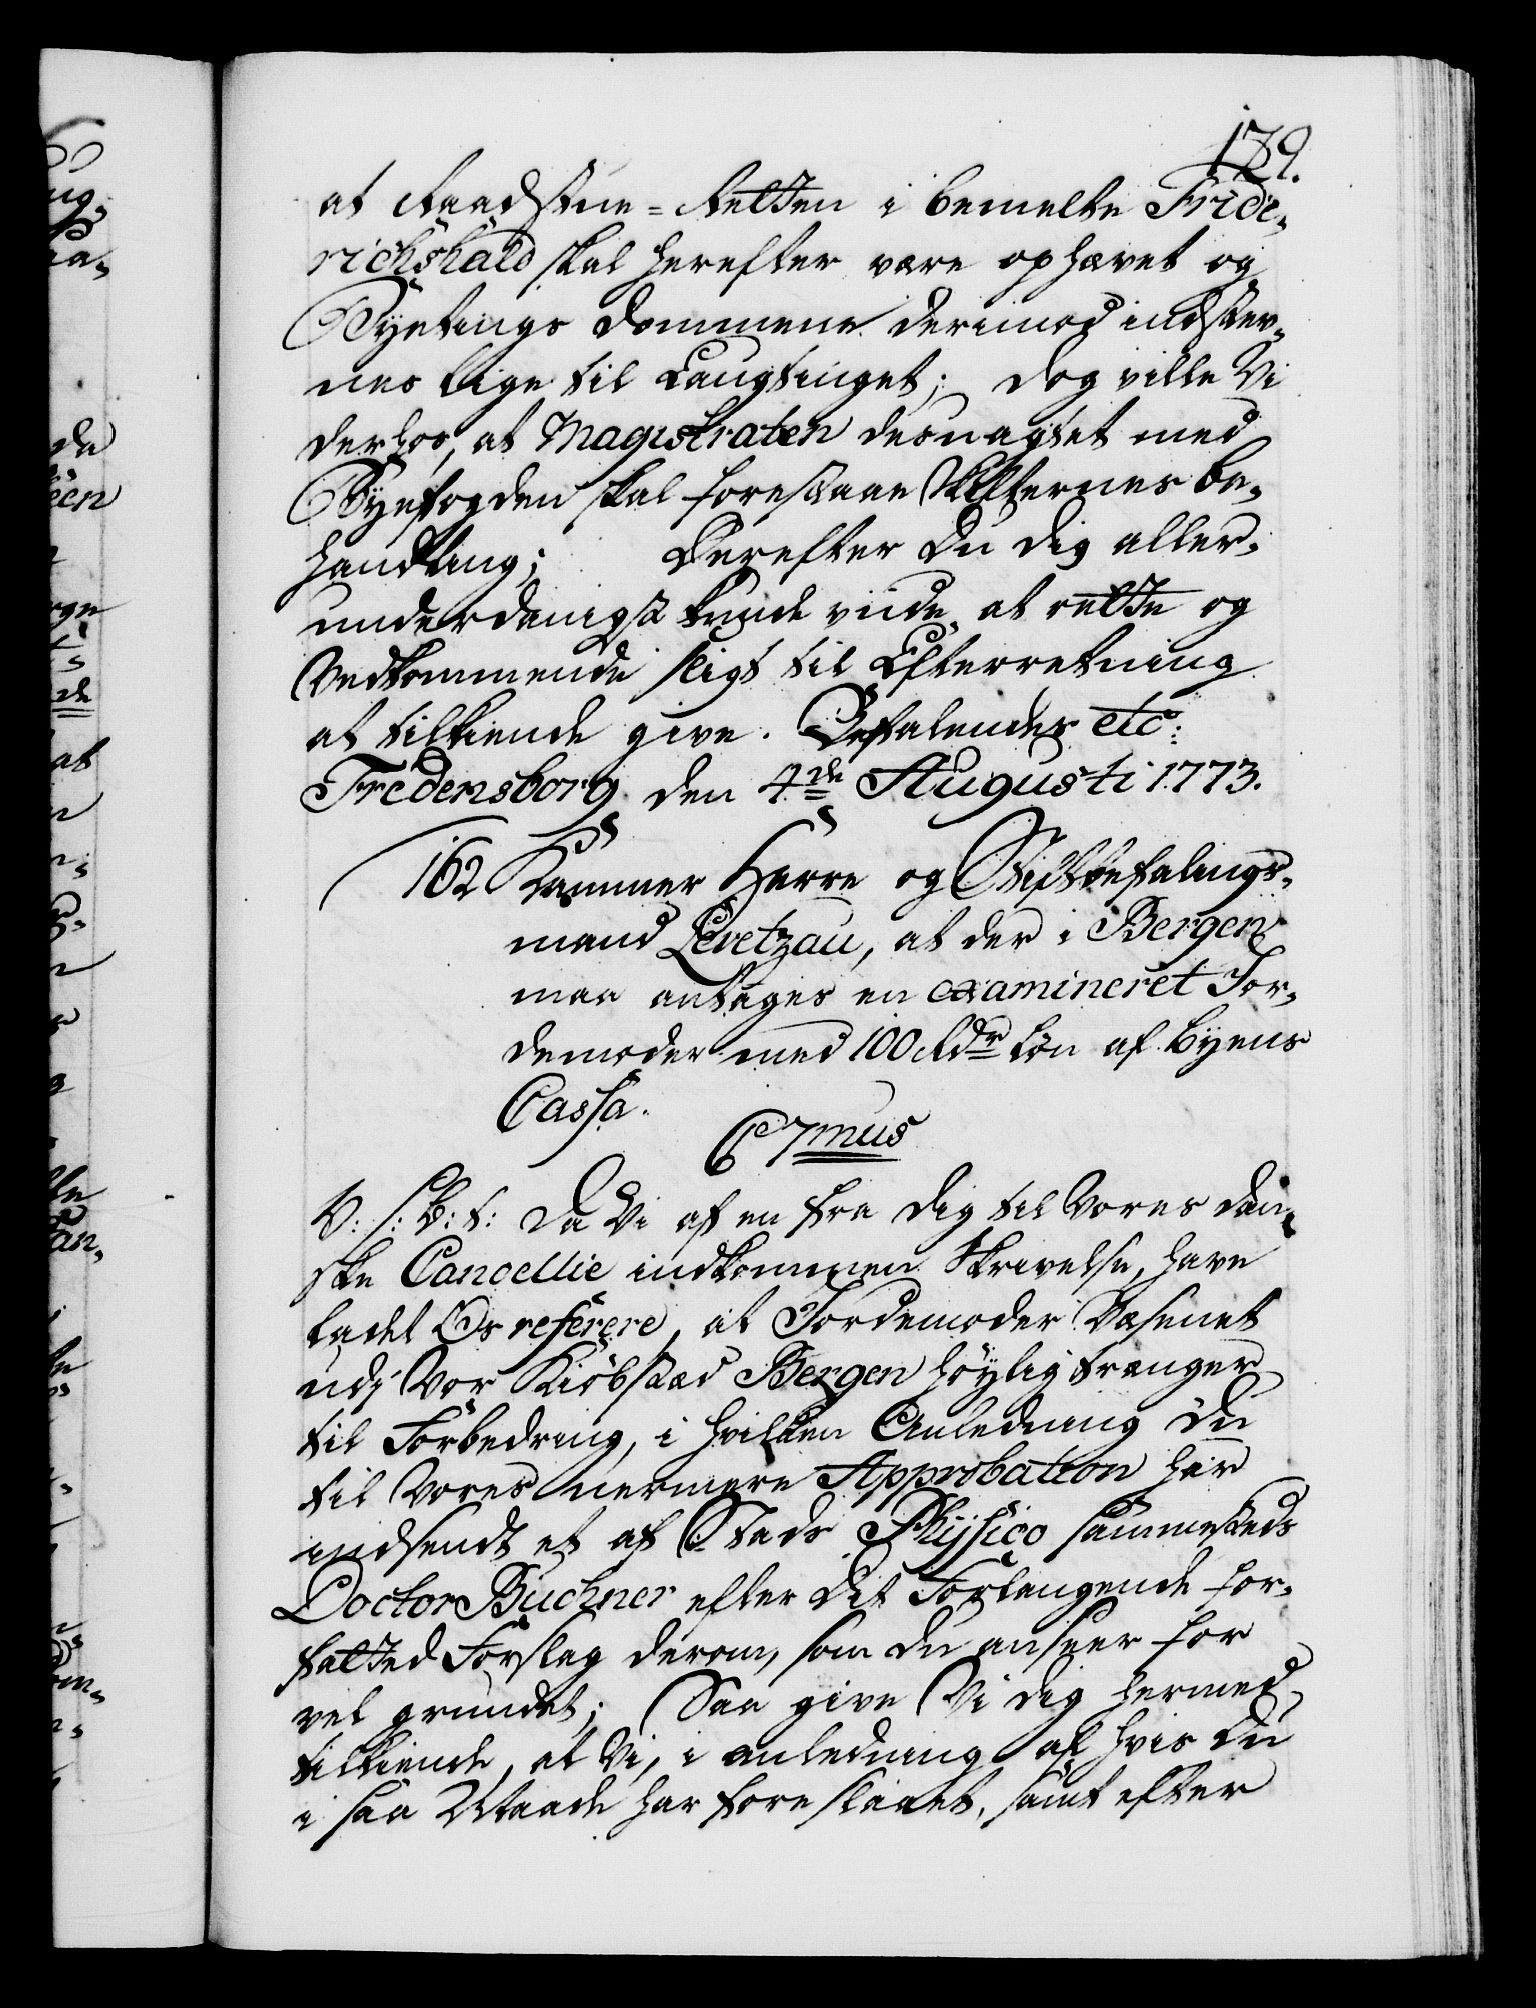 179.
at Raadstue-Retten i bemelte Fride-
richshald skal herefter være ophævet og
Byetings Dommene derimod indstev-
nes lige til Laugtinget; dog ville Vi
derhos, at Magistraten desuagtet med
Byefogden skal forestaae Skifternes be-
handling; Derefter du dig aller-
underdanigst kunde viide at rette og
Vedkommende sligt til Efterretning
at tilkiende give. Befalendes etc:
Fredensborg den 4de Augusti 1773.
162 Kammer Herre og Stiftbefalings-
mand Levetzau, at der i Bergen
maa antages en examineret Jor-
demoder med 100 Rdr Løn af Byens
Cassa.
C 7mus
V: S: B: t: Da Vi af en fra dig til Vores dan-
ske Cancellie indkommen Skrivelse, have
ladet Os referere, at Jordemoder Væsenet
udj Vor Kiøbstæd Bergen høylig trænger
til Forbedring, i hvilken Anledning du
til Vores nermere Approbation har
indsendt et af Stads Physico sammesteds
Doctor Buchner efter Dit Forlangende for-
fatted Forslag derom, som du anseer for
vel grundet; Saa give Vi dig hermed
tilkiende, at Vi, i anledning af hvis du
i saa Maade har foreslaaet, samt efter